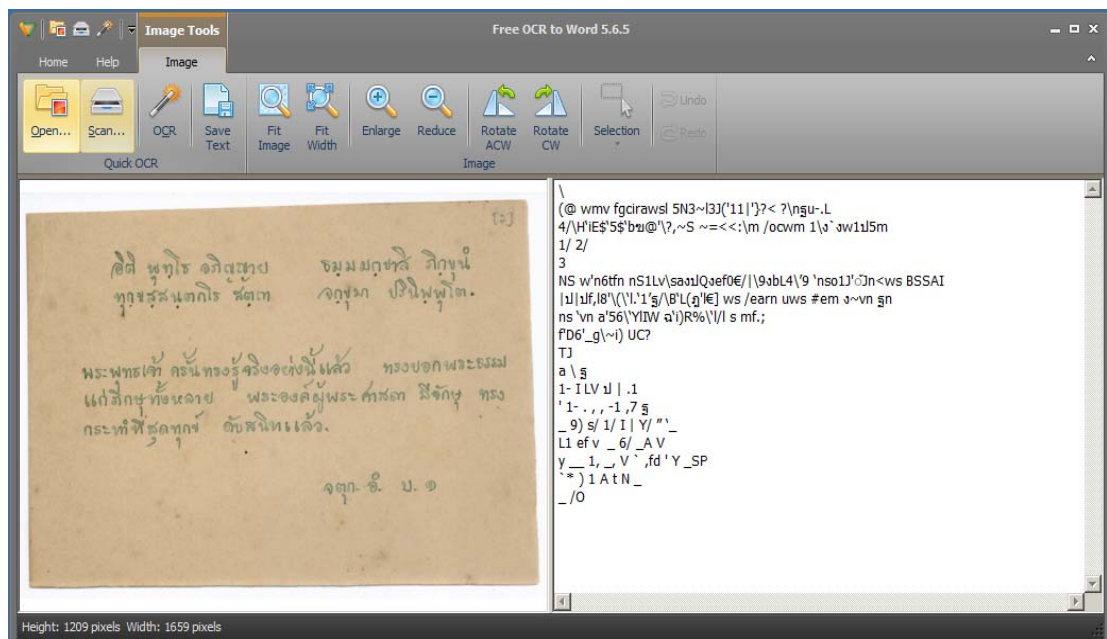 Image Tools
Free OCR to Word 5.6.5
Home Help Image
Open... Scan... OCR Save Text Fit Image Fit Width Enlarge Reduce Rotate ACW Rotate CW Selection Undo Redo
Quick OCR Image
อิติ พุทฺโธ อภิญฺญาย ธมฺมมกฺขาสิ ภิกฺขุนํ
ทุกฺขสฺสนฺตกโร สตฺถา จกฺขุมา ปรินิพฺพุโต.
พระพุทธเจ้า ครั้นทรงรู้จริงอย่างนี้แล้ว ทรงบอกพระธรรม
แก่ภิกษุทั้งหลาย พระองค์ผู้พระศาสดา มีจักษุ ทรง
กระทำที่สุดทุกข์ ดับสนิทแล้ว.
จตุก. อํ. ๑
\
(@ wmv fgcirawsl 5N3~l3J('11|'}?< ?\nฐu-.L
4/\H'iE$'5$'bฃ@'\?,~S ~=<<:\m /ocwm 1\ง`งw1ป5m
1/ 2/
3
NS w'n6tfn nS1Lv\saงปQงef0€/|\9งbL4\'9 'nso1J'Jn<ws BSSAI
|ป|ปf,l8'\(\'l.'1'ฐ/\B'L(ฎ'l€] ws /earn uws #em ง~vn ฐn
ns 'vn a'56\'YlIW ฉ'i)R%\'l/l s mf.;
f'D6'_g\~i) UC?
TJ
a \ ฐ
1- I LV ป | .1
' 1- . , , -1 ,7 ฐ
_ 9) s/ 1/ I | Y/ "'_
L1 ef v _ 6/ _A V
y __ 1, _, V ` ,fd ' Y _SP
`* ) 1 A t N _
_ /O
Height: 1209 pixels Width: 1659 pixels